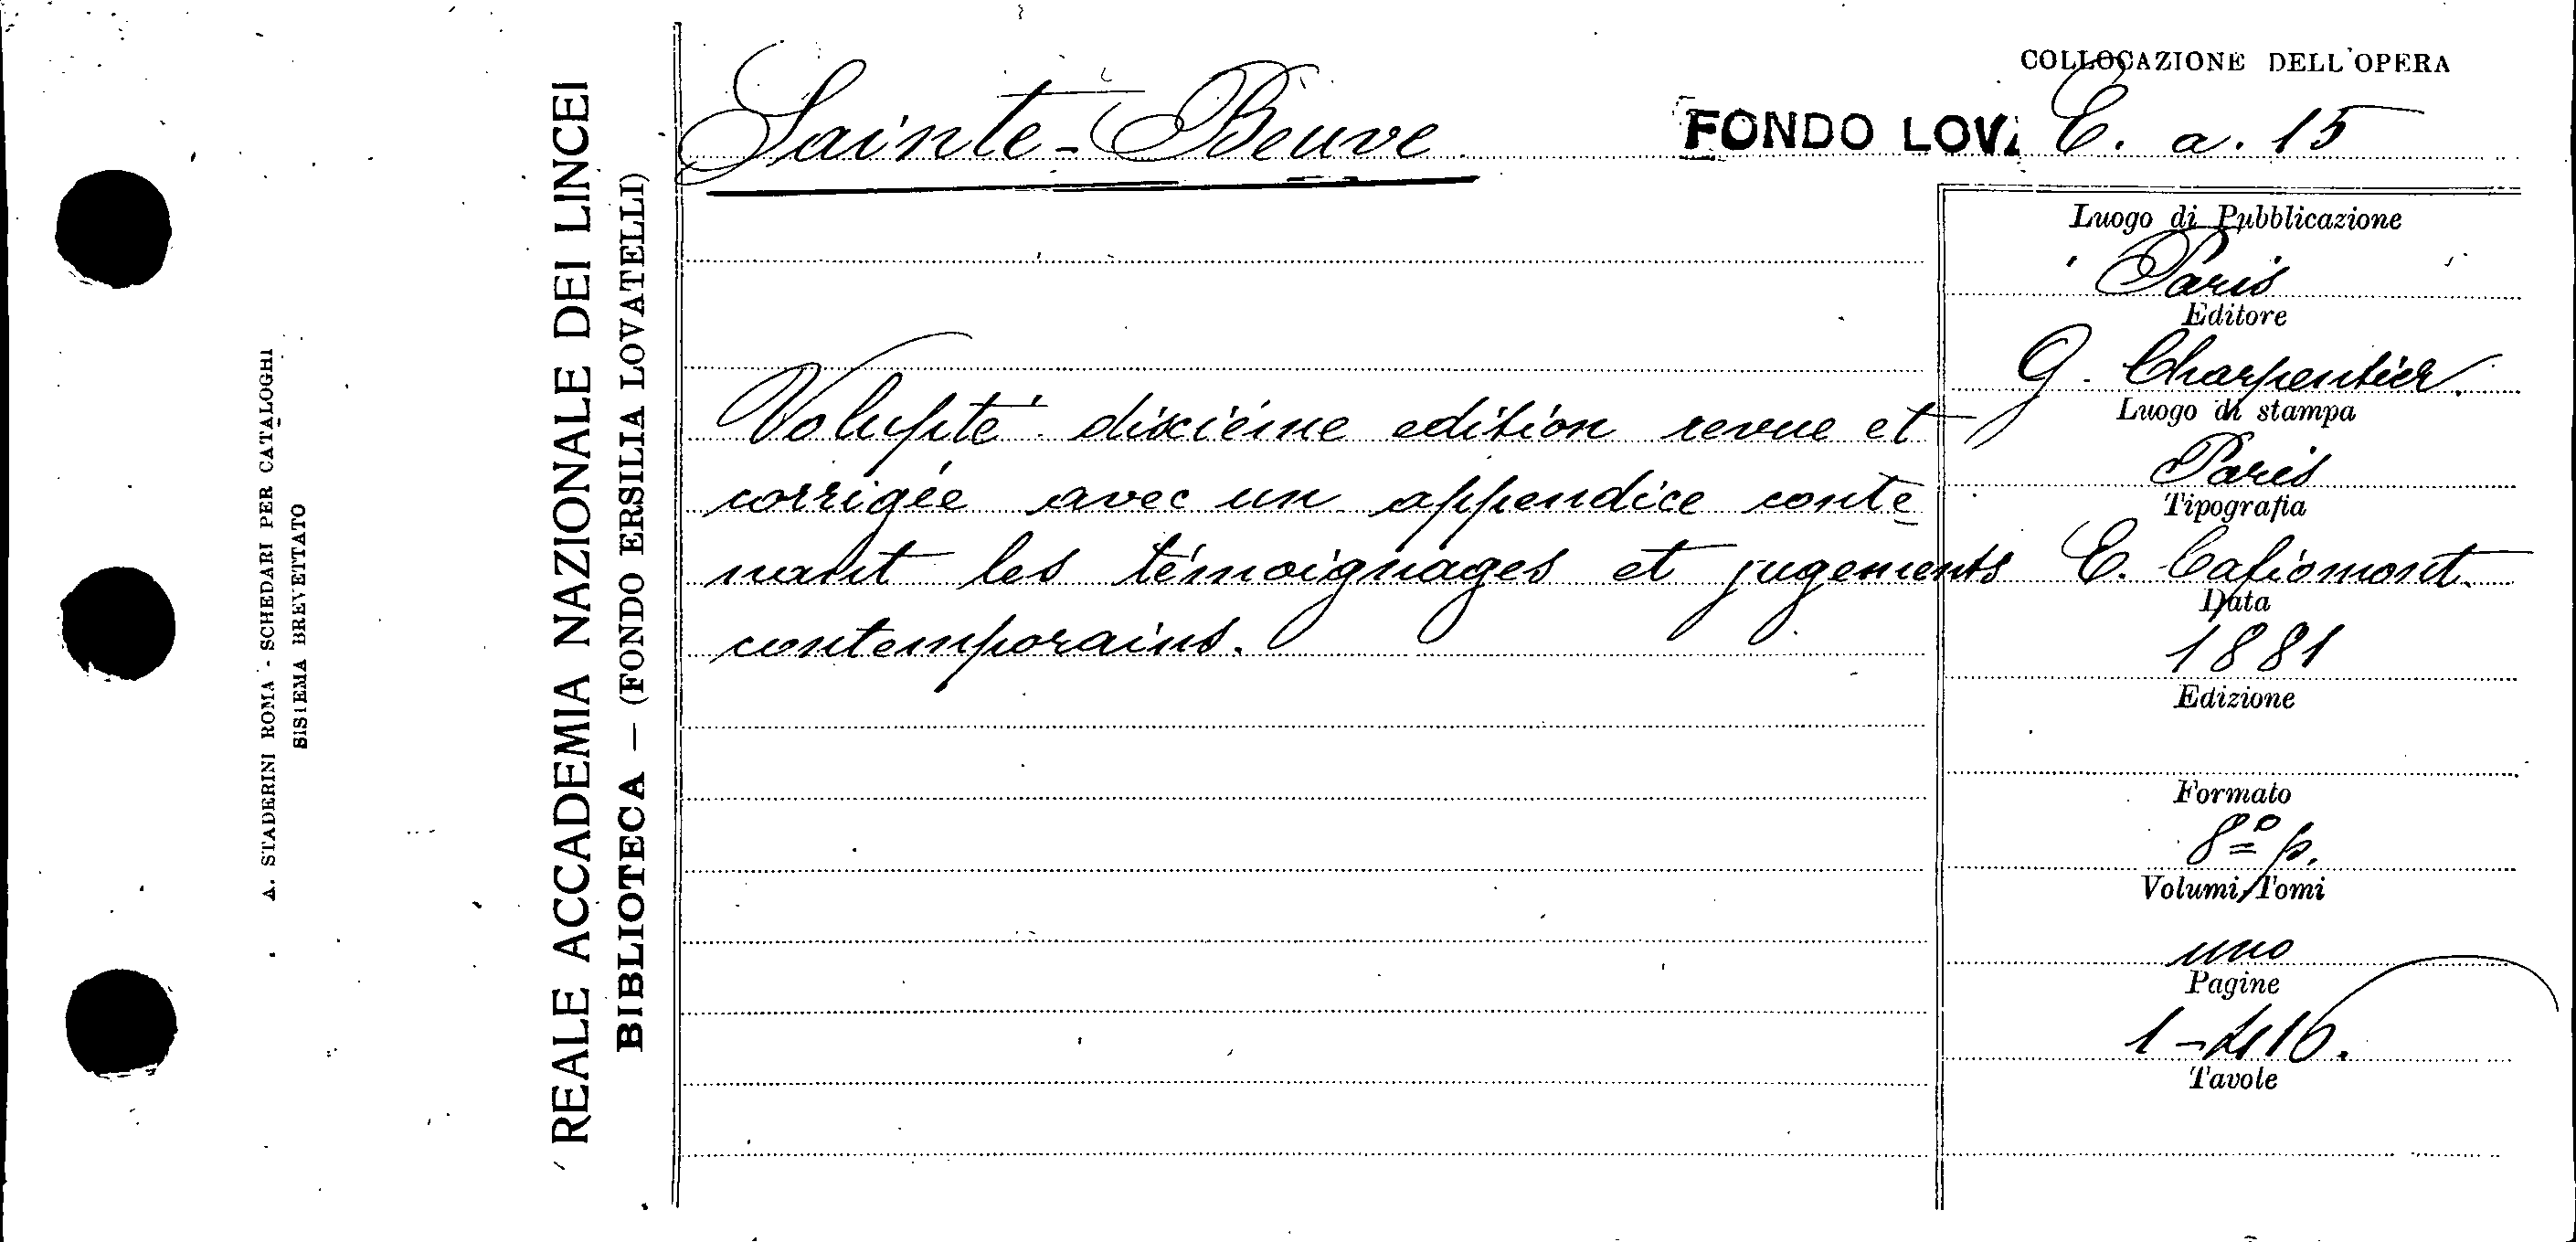 COLLOCAZIONE DELL'OPERA
Sainte-Beuve
FONDO LOV. E. a. 15
Volupté dixième edition revue et
corrigée avec un appendice conte
nant les témoignages et jugements
contemporains.
Luogo di Pubblicazione
Paris
Editore
G. Charpentier.
Luogo di stampa
Paris
Tipografia
E. Capiomont.
Data
1881
Edizione
Formato
8º p.
Volumi/Tomi
uno
Pagine
1-416.
Tavole
REALE ACCADEMIA NAZIONALE DEI LINCEI
BIBLIOTECA — (FONDO ERSILIA LOVATELLI)
A. STADERINI ROMA - SCHEDARI PER CATALOGHI
SISTEMA BREVETTATO